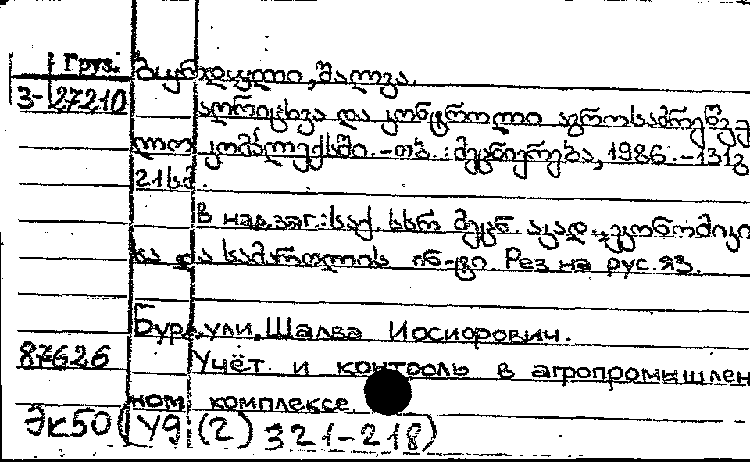 Груз.
3-27210
შალვა.
აღრიცხვა და კონტროლი აგროსამრეწვე
ლო კომპლექსში. -თბ.: მეცნიერება, 1986. -131გ
21სმ.
В надзаг.: საქ. სსრ მეცნ. აკად. ეკონომიკი
სა და სამართლის ინ-ტი Рез. на рус. яз.
Шалва Иосифович.
87626 Учёт и контроль в агропромышлен
ном комплексе.
Эк50(У9(2)321-218)